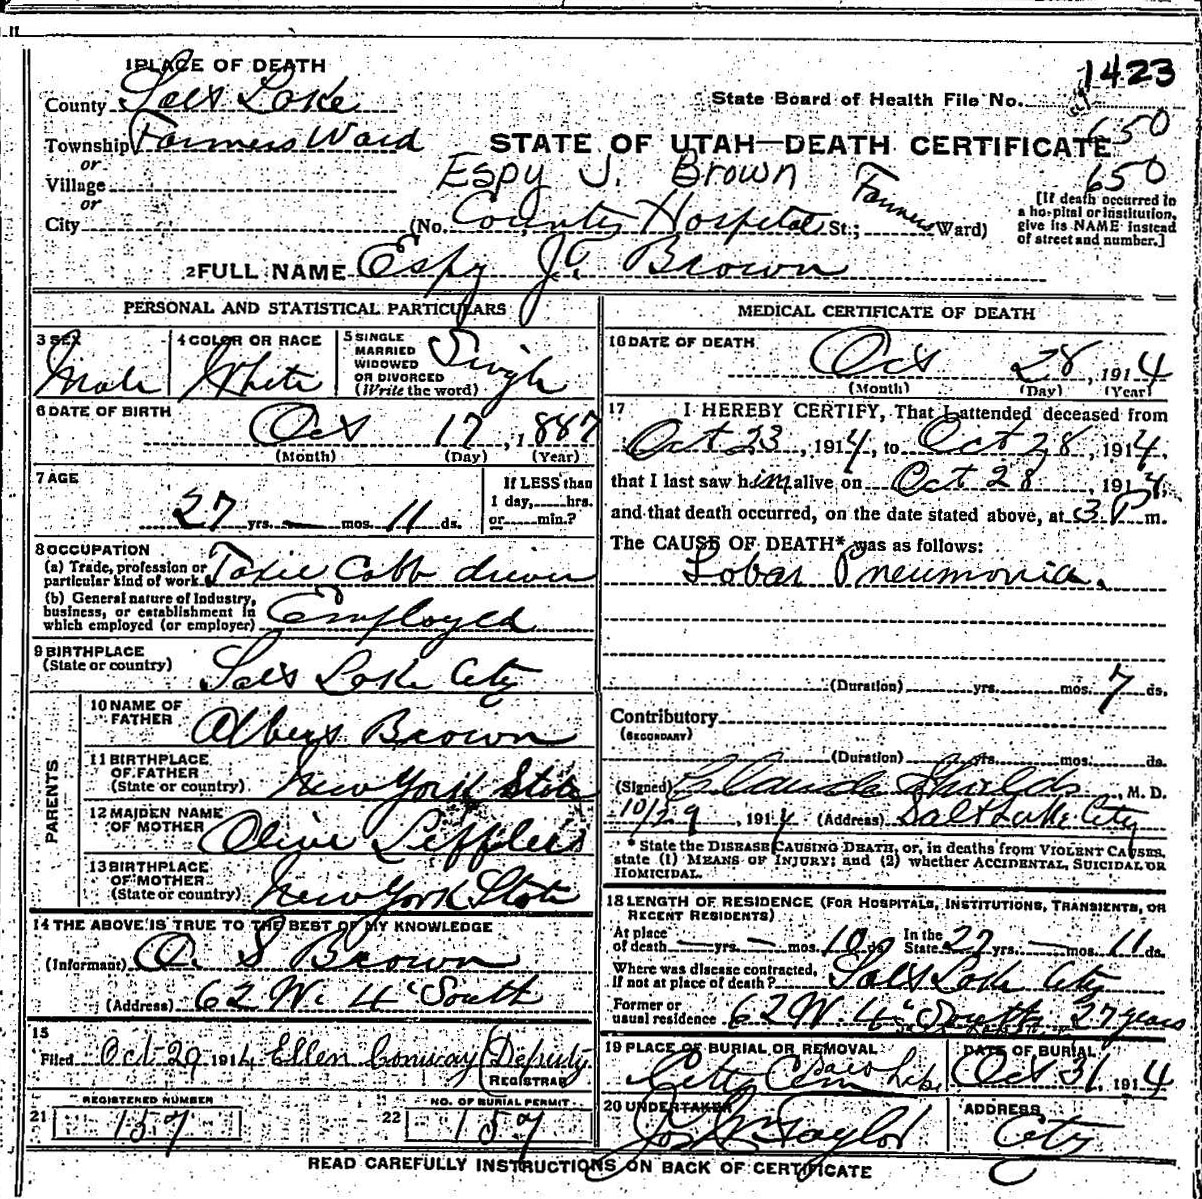 1 PLACE OF DEATH
1423
County Salt Lake
State Board of Health File No.
650
Township Farmers Ward
STATE OF UTAH—DEATH CERTIFICATE
or
Village
Espy J. Brown
650
or
City (No. County Hospital St.; Farmers Ward)
[If death occurred in
a hospital or institution,
give its NAME instead
of street and number.]
2 FULL NAME Espy J. Brown
PERSONAL AND STATISTICAL PARTICULARS
3 SEX
Male
4 COLOR OR RACE
White
5 SINGLE
MARRIED
WIDOWED
OR DIVORCED
(Write the word)
Single
6 DATE OF BIRTH
Oct 17, 1887
(Month) (Day) (Year)
7 AGE
27 yrs. — mos. 11 ds.
If LESS than
1 day, hrs.
or min.?
8 OCCUPATION
(a) Trade, profession or
particular kind of work Taxie Cabb driver
(b) General nature of Industry,
business, or establishment in
which employed (or employer) Employed
9 BIRTHPLACE
(State or country) Salt Lake City
PARENTS
10 NAME OF
FATHER Albert Brown
11 BIRTHPLACE
OF FATHER
(State or country) New York State
12 MAIDEN NAME
OF MOTHER Olive Leffler
13 BIRTHPLACE
OF MOTHER
(State or country) New York State
14 THE ABOVE IS TRUE TO THE BEST OF MY KNOWLEDGE
(Informant) O. S Brown
(Address) 62 W. 4" South
15
Filed Oct 29 1914 Ellen Conway (Deputy
REGISTRAR
REGISTERED NUMBER
21 157
NO. OF BURIAL PERMIT
22 157
MEDICAL CERTIFICATE OF DEATH
16 DATE OF DEATH
Oct 28, 1914
(Month) (Day) (Year)
17 I HEREBY CERTIFY, That I attended deceased from
Oct 23, 1914, to Oct 28, 1914,
that I last saw him alive on Oct 28, 1914,
and that death occurred, on the date stated above, at 3 P m.
The CAUSE OF DEATH* was as follows:
Lobar Pneumonia.
(Duration) yrs. mos. 7 ds.
Contributory
(SECONDARY)
(Duration) yrs. mos. ds.
(Signed) Claude Shields, M. D.
10/29, 1914 (Address) Salt Lake City
* State the DISEASE CAUSING DEATH, or, in deaths from VIOLENT CAUSES,
state (1) MEANS OF INJURY; and (2) whether ACCIDENTAL, SUICIDAL OR
HOMICIDAL.
18 LENGTH OF RESIDENCE (FOR HOSPITALS, INSTITUTIONS, TRANSIENTS, OR
RECENT RESIDENTS)
At place
of death — yrs. — mos. 10 ds.
In the
State 27 yrs. — mos. 11 ds.
Where was disease contracted,
If not at place of death? Salt Lake City
Former or
usual residence 62 W. 4" South 27 years
19 PLACE OF BURIAL OR REMOVAL
City Cem
DATE OF BURIAL
Oct 31, 1914
20 UNDERTAKER
Jos Wm Taylor
ADDRESS
City
READ CAREFULLY INSTRUCTIONS ON BACK OF CERTIFICATE